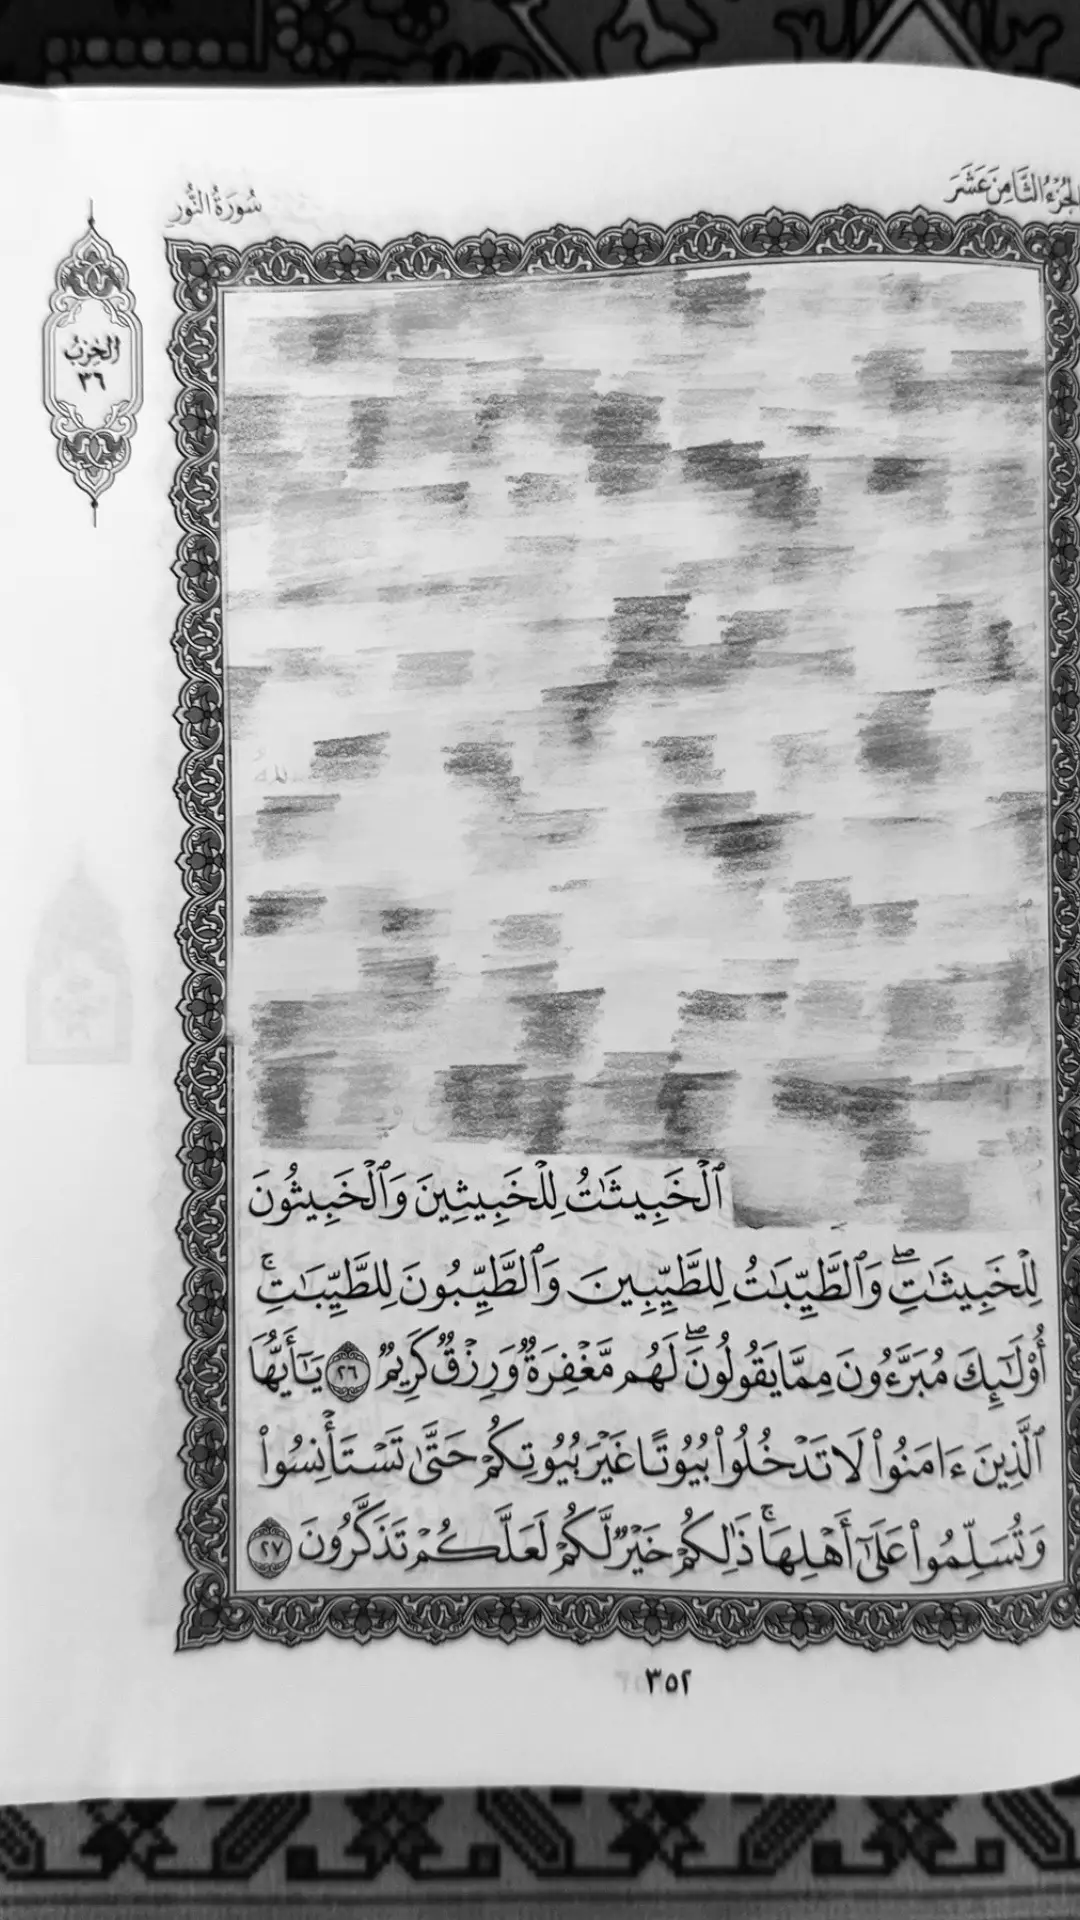 الجزء الثامن عشر
سُورَةُ النُّورِ
الحِزْبُ
٣٦
ٱلْخَبِيثَٰتُ لِلْخَبِيثِينَ وَٱلْخَبِيثُونَ
لِلْخَبِيثَٰتِۖ وَٱلطَّيِّبَٰتُ لِلطَّيِّبِينَ وَٱلطَّيِّبُونَ لِلطَّيِّبَٰتِۚ
أُو۟لَٰٓئِكَ مُبَرَّءُونَ مِمَّا يَقُولُونَۖ لَهُم مَّغْفِرَةٌ وَرِزْقٌ كَرِيمٌ ٢٦ يَٰٓأَيُّهَا
ٱلَّذِينَ ءَامَنُوا۟ لَا تَدْخُلُوا۟ بُيُوتًا غَيْرَ بُيُوتِكُمْ حَتَّىٰ تَسْتَأْنِسُوا۟
وَتُسَلِّمُوا۟ عَلَىٰٓ أَهْلِهَاۚ ذَٰلِكُمْ خَيْرٌ لَّكُمْ لَعَلَّكُمْ تَذَكَّرُونَ ٢٧
٣٥٢